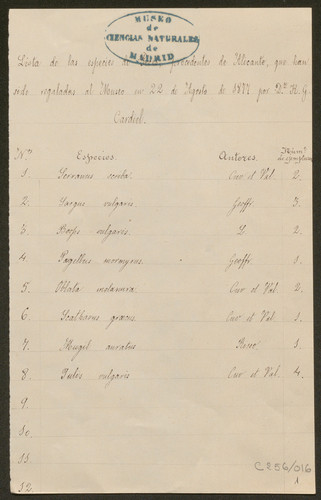 MUSEO
de
CIENCIAS NATURALES
de
MADRID
Lista de las especies de procedentes de Alicante, que han
sido regaladas al Museo en 22 de Agosto de 1877 por Dn. H. G.
Cardiel.
Nº Especies. Autores. Númº de ejemplares
1. Serranus scriba. Cuv et Val. 2.
2. Sargus vulgaris Geoffr. 3.
3. Boops vulgaris. L. 2.
4 Pagellus mormyrus. Geoffr. 1.
5. Oblata melanura. Cuv et Val. 2.
6. Scatharus græcus. Cuv et Val. 1.
7. Mugil auratus Risso 1.
8. vulgaris Cuv et Val. 4.
9.
10.
11.
12.
C256/016
1